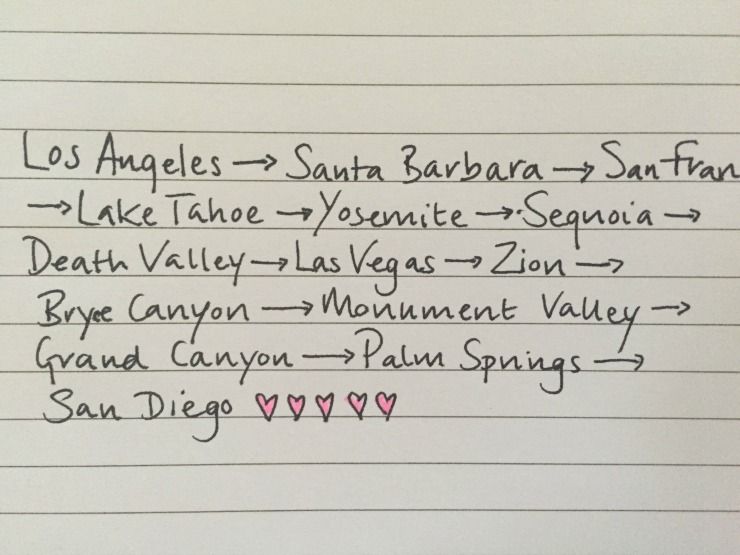 Los Angeles → Santa Barbara → San Fran
→ Lake Tahoe → Yosemite → Sequoia →
Death Valley → Las Vegas → Zion →
Bryce Canyon → Monument Valley →
Grand Canyon → Palm Springs →
San Diego ♡♡♡♡♡